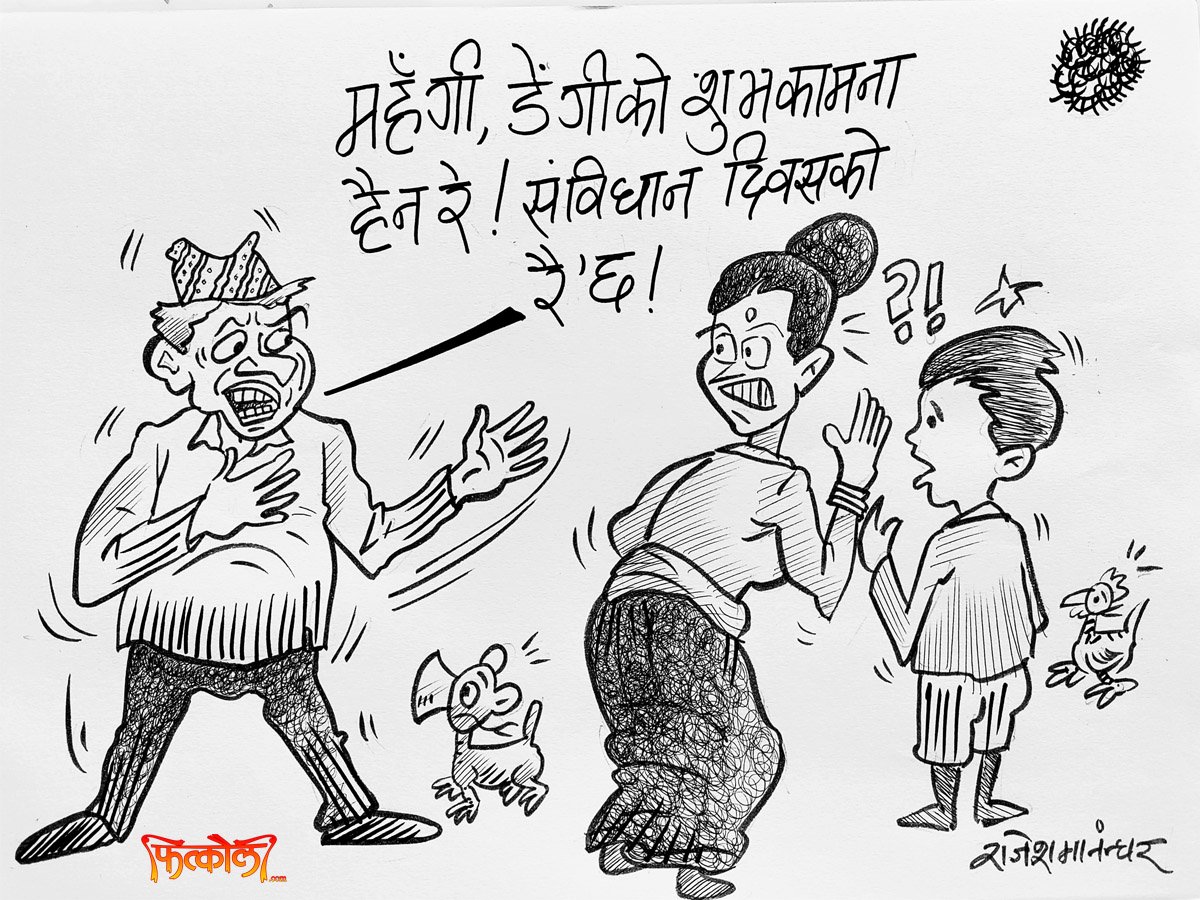 महँगी, डेंगीको शुभकामना
हैन रे! संविधान दिवसको
रै'छ!
?!
फत्कौलो
.com
राजेशमानन्धर